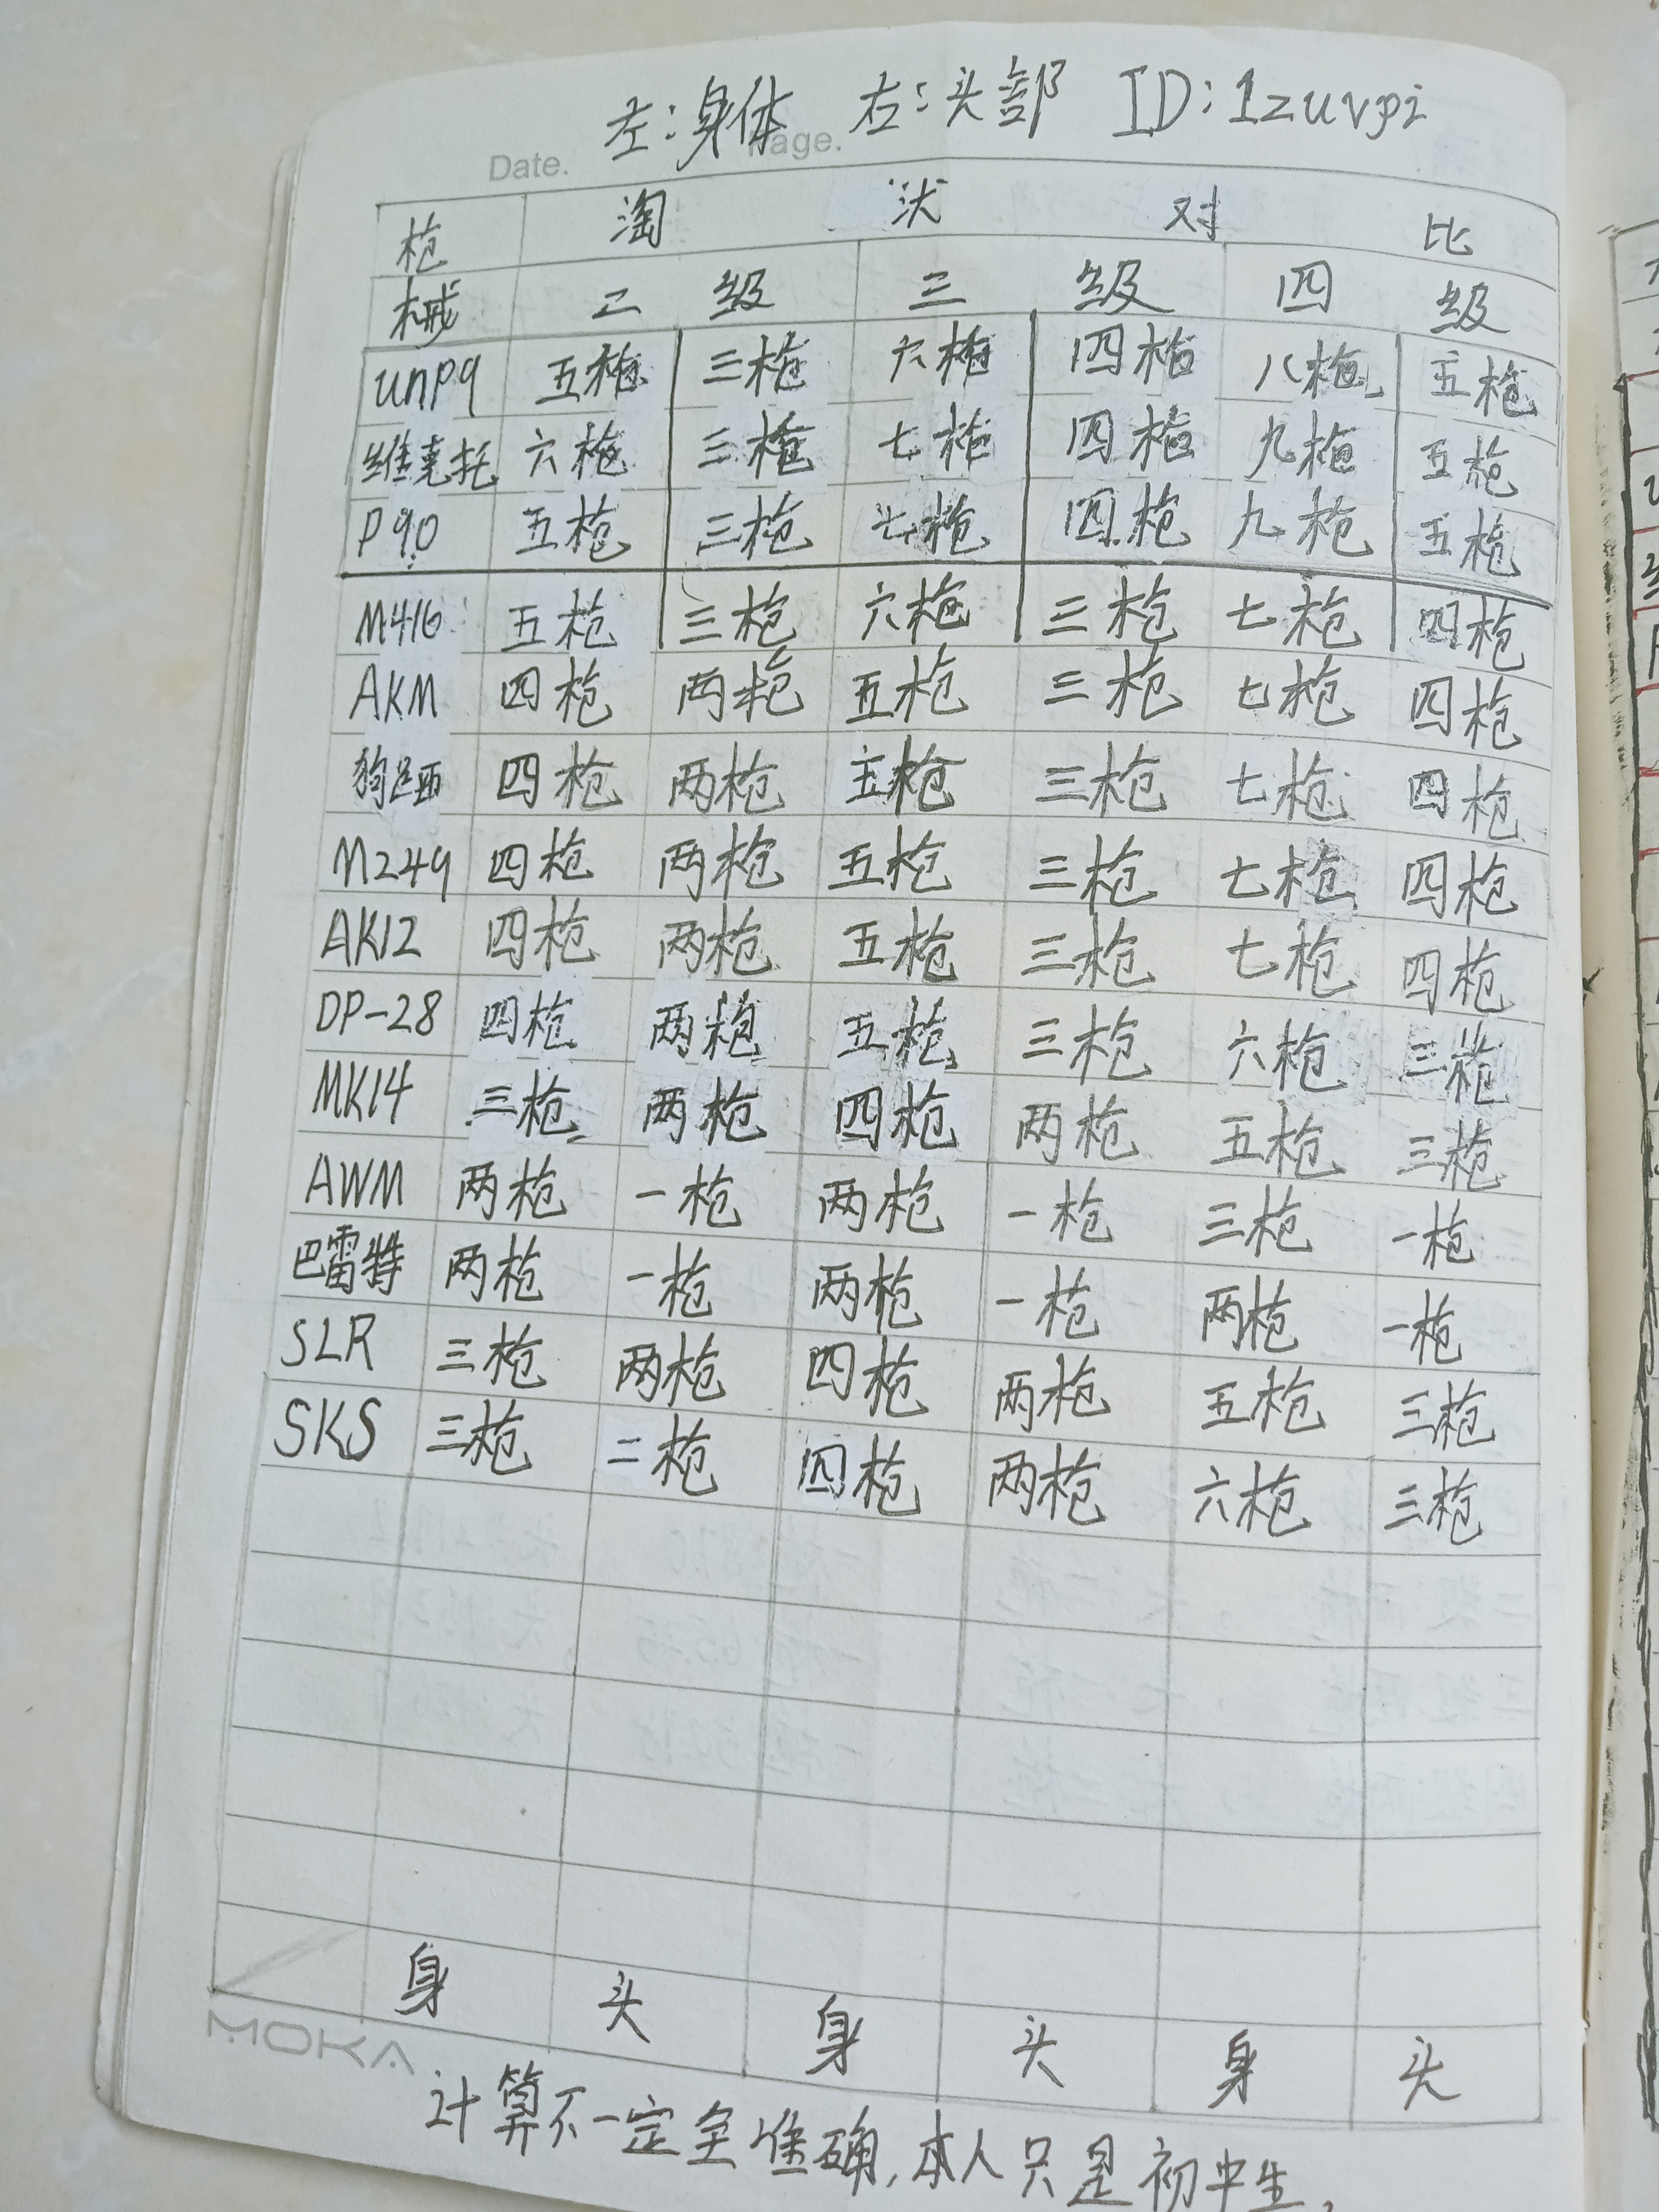 左:身体 右:头部 ID:1zuvpi
Date. Page.
枪 淘 汰 对 比
械 二 级 三 级 四 级
UMP9 五枪 三枪 六枪 四枪 八枪 五枪
维克托 六枪 三枪 七枪 四枪 九枪 五枪
P90 五枪 三枪 七枪 四枪 九枪 五枪
M416 五枪 三枪 六枪 三枪 七枪 四枪
AKM 四枪 两枪 五枪 三枪 七枪 四枪
狗杂 四枪 两枪 五枪 三枪 七枪 四枪
M249 四枪 两枪 五枪 三枪 七枪 四枪
AK12 四枪 两枪 五枪 三枪 七枪 四枪
DP-28 四枪 两枪 五枪 三枪 六枪 三枪
MK14 三枪 两枪 四枪 两枪 五枪 三枪
AWM 两枪 一枪 两枪 一枪 三枪 一枪
巴雷特 两枪 一枪 两枪 一枪 两枪 一枪
SLR 三枪 两枪 四枪 两枪 五枪 三枪
SKS 三枪 二枪 四枪 两枪 六枪 三枪
身 头 身 头 身 头
MOKA
计算不一定全准确,本人只是初中生,